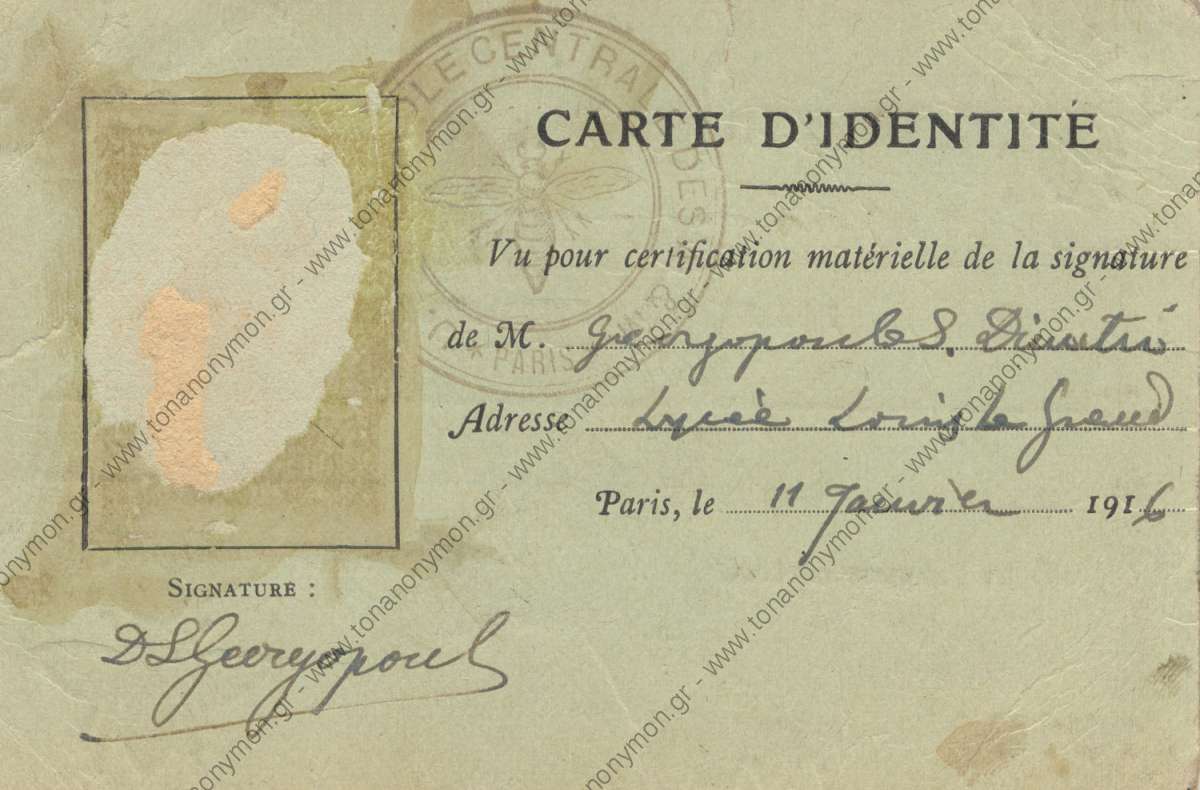 CARTE D'IDENTITÉ
Vu pour certification matérielle de la signature
de M. Georgopoul S. Dimitri
Adresse Lycée Louis le Grand
Paris, le 11 Janvier 1916
SIGNATURE :
DSGeorgopoul
OLE CENTRALE DES
* PARIS
www.tonanonymon.gr - www.tonanonymon.gr - www.tonanonymon.gr